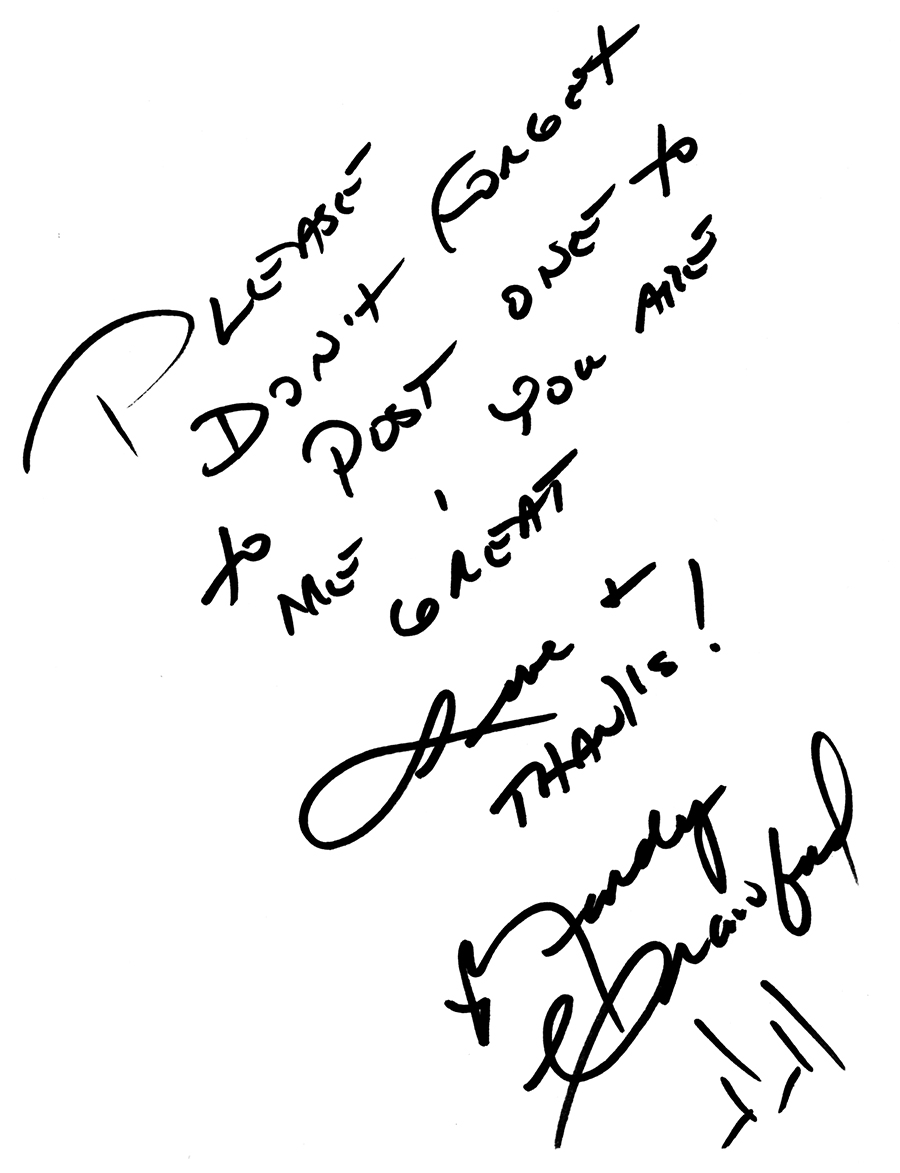 PLEASE
DON'T FORGET
TO POST ONE TO
ME, YOU ARE
GREAT
Love +
THANKS!
Randy
Crawford